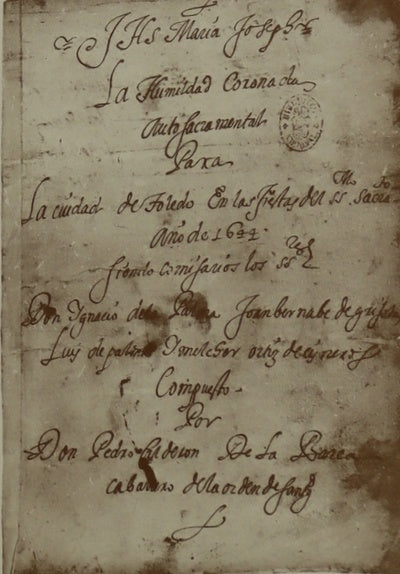 JHS Maria Joseph
La Humildad Coronada
Auto sacramental
Para
La ciudad de Toledo En las fiestas del SS.mo Sacra.to
Año de 1644.
siendo comisarios los SS.res
Don Ygnacio de la Palma Joan bernabe de
Luis de palma Y melchor ortiz de cisneros
Compuesto
Por
Don Pedro Calderon De La Barca
caballero de la orden de Santi